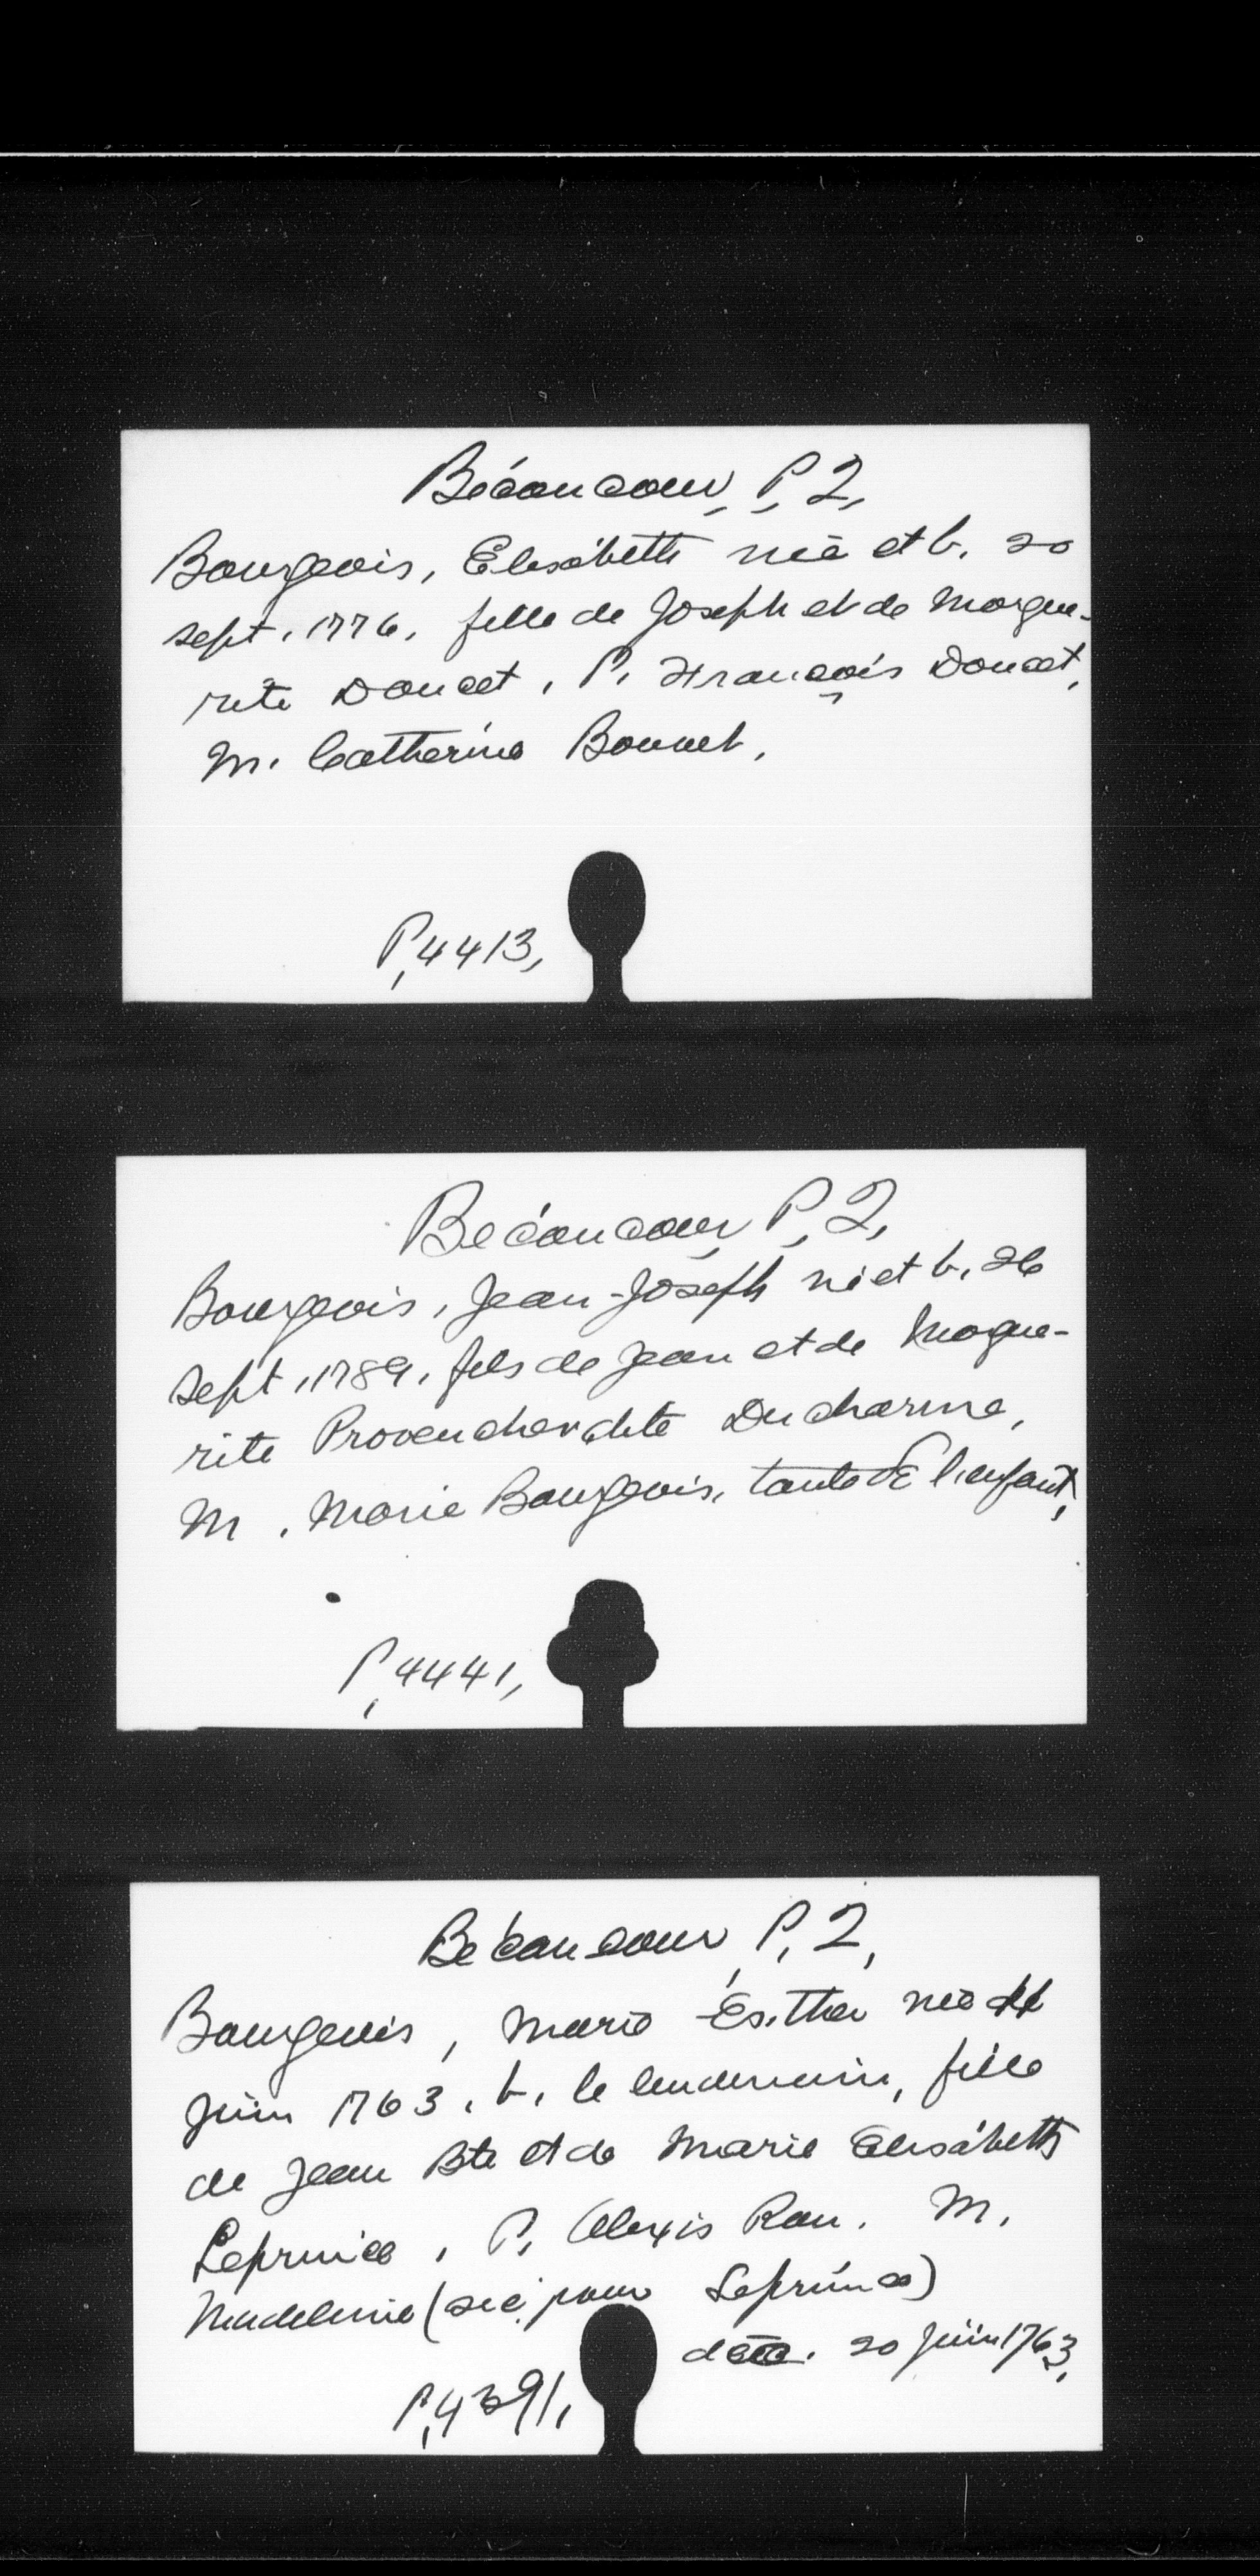 Bécancour, P, 2,
Bourgeois, Elisabeth née et b. 20
sept. 1776, fille de Joseph et de Margue-
rite Doucet, P. François Doucet,
M. Catherine Bouvet,
P, 4413,
Bécancour, P, 2,
Bourgeois, Jean-Joseph né et b. 26
sept. 1789, fils de Jean et de Margue-
rite Provencher dite Ducharme,
M. Marie Bourgeois, tante de l'enfant,
P, 4441,
Bécancour, P, 2,
Bourgeois, Marie Esther née
Juin 1763. b. le lendemain, fille
de Jean Bte et de Marie Elisabeth
Leprince, P. Alexis Rau. M.
Madeleine (sic pour Leprince)
20 juin 1763,
P, 4391,